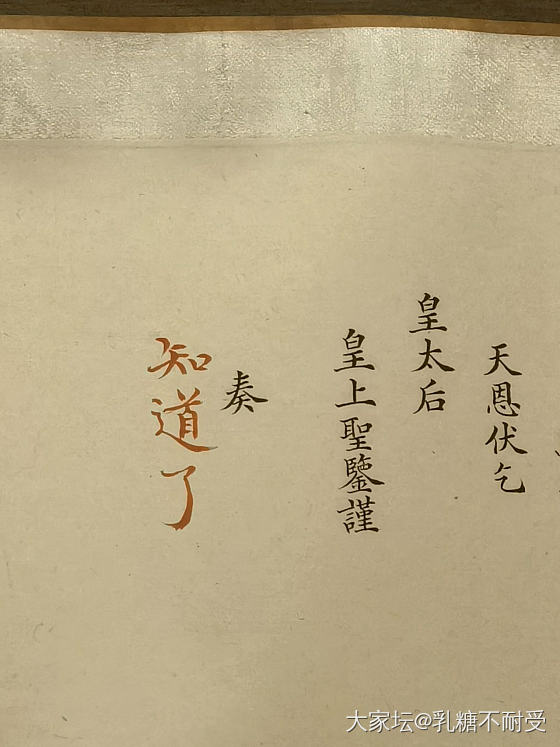 天恩伏乞
皇太后
皇上聖鑒謹
奏
知道了
大家坛@乳糖不耐受